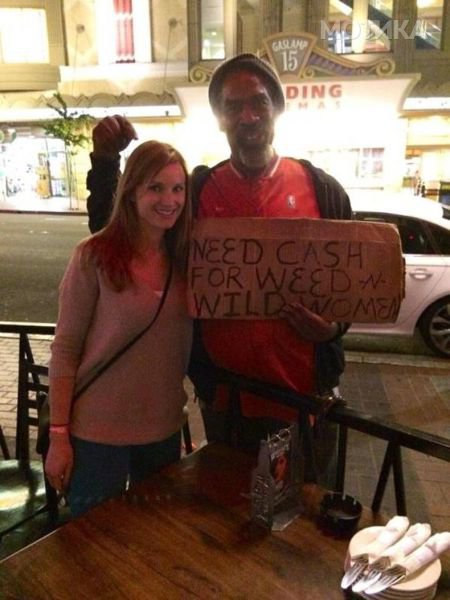 МОJКА!
GASLAMP
15
DING
EMAS
NEED CASH
FOR WEED -N-
WILD WOMEN